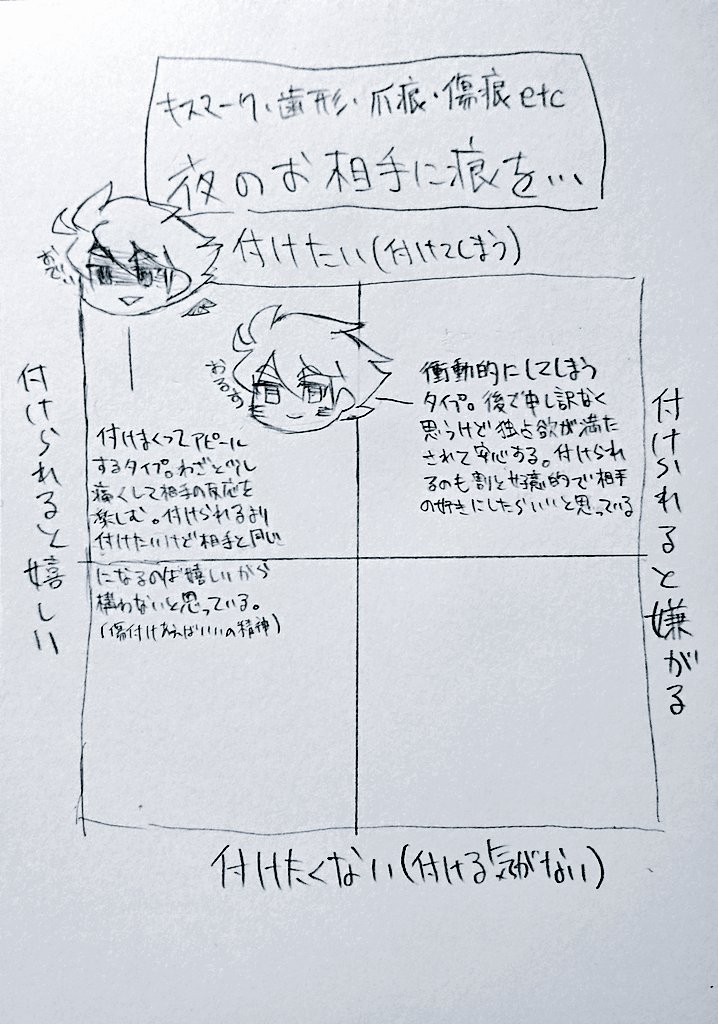 キスマーク・歯形・爪痕・傷痕etc
夜のお相手に痕を…
付けたい(付けてしまう)
付けられると嬉しい
付けられると嫌がる
付けまくってアピール
するタイプ。わざと少し
痛くして相手の反応を
楽しむ。付けられるより
付けたいけど相手と同じ
になるのは嬉しいから
構わないと思っている。
(傷付けあえばいいの精神)
衝動的にしてしまう
タイプ。後で申し訳なく
思うけど独占欲が満た
されて安心する。付けられ
るのも割と好意的で相手
の好きにしたらいいと思っている
付けたくない(付ける気がない)